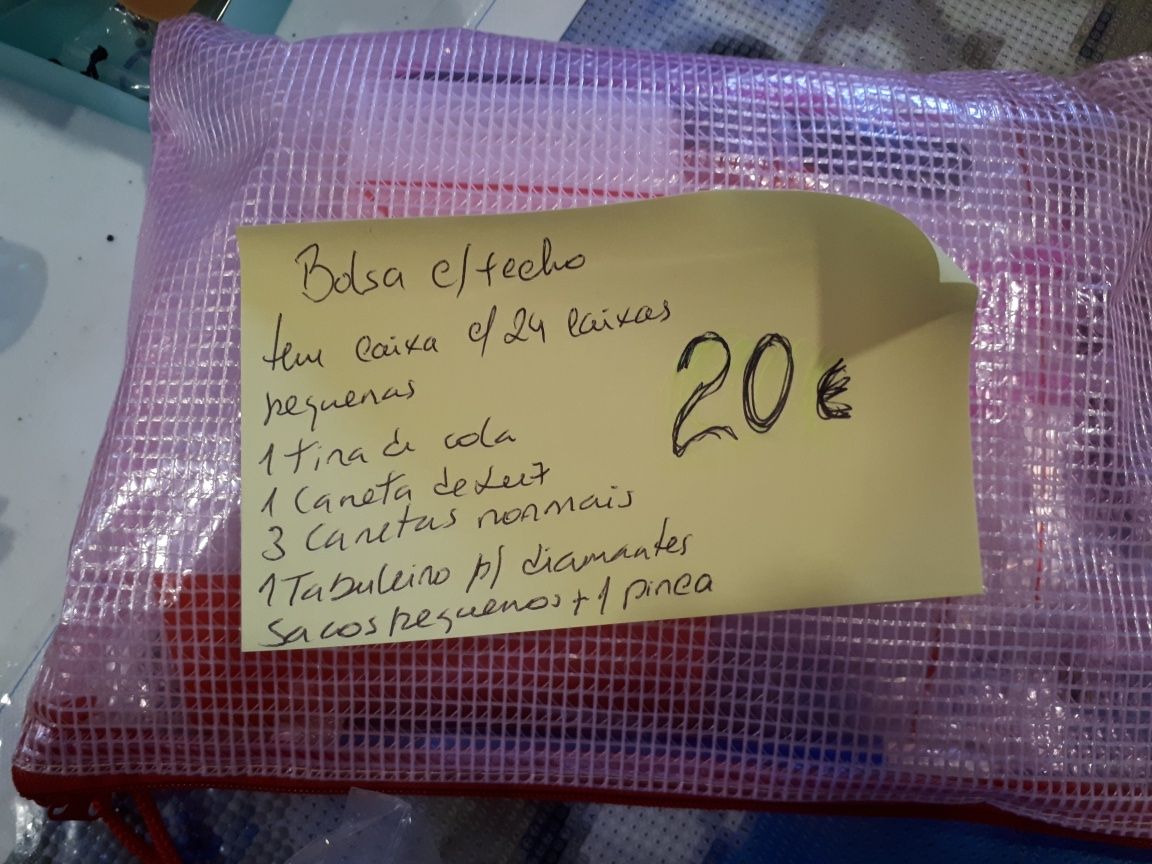 Bolsa c/fecho
tem caixa c/ 24 caixas
pequenas
20 €
1 tira de cola
1 Caneta de Luz
3 Canetas normais
1 Tabuleiro p/ diamantes
Sacos pequenos + 1 pinça